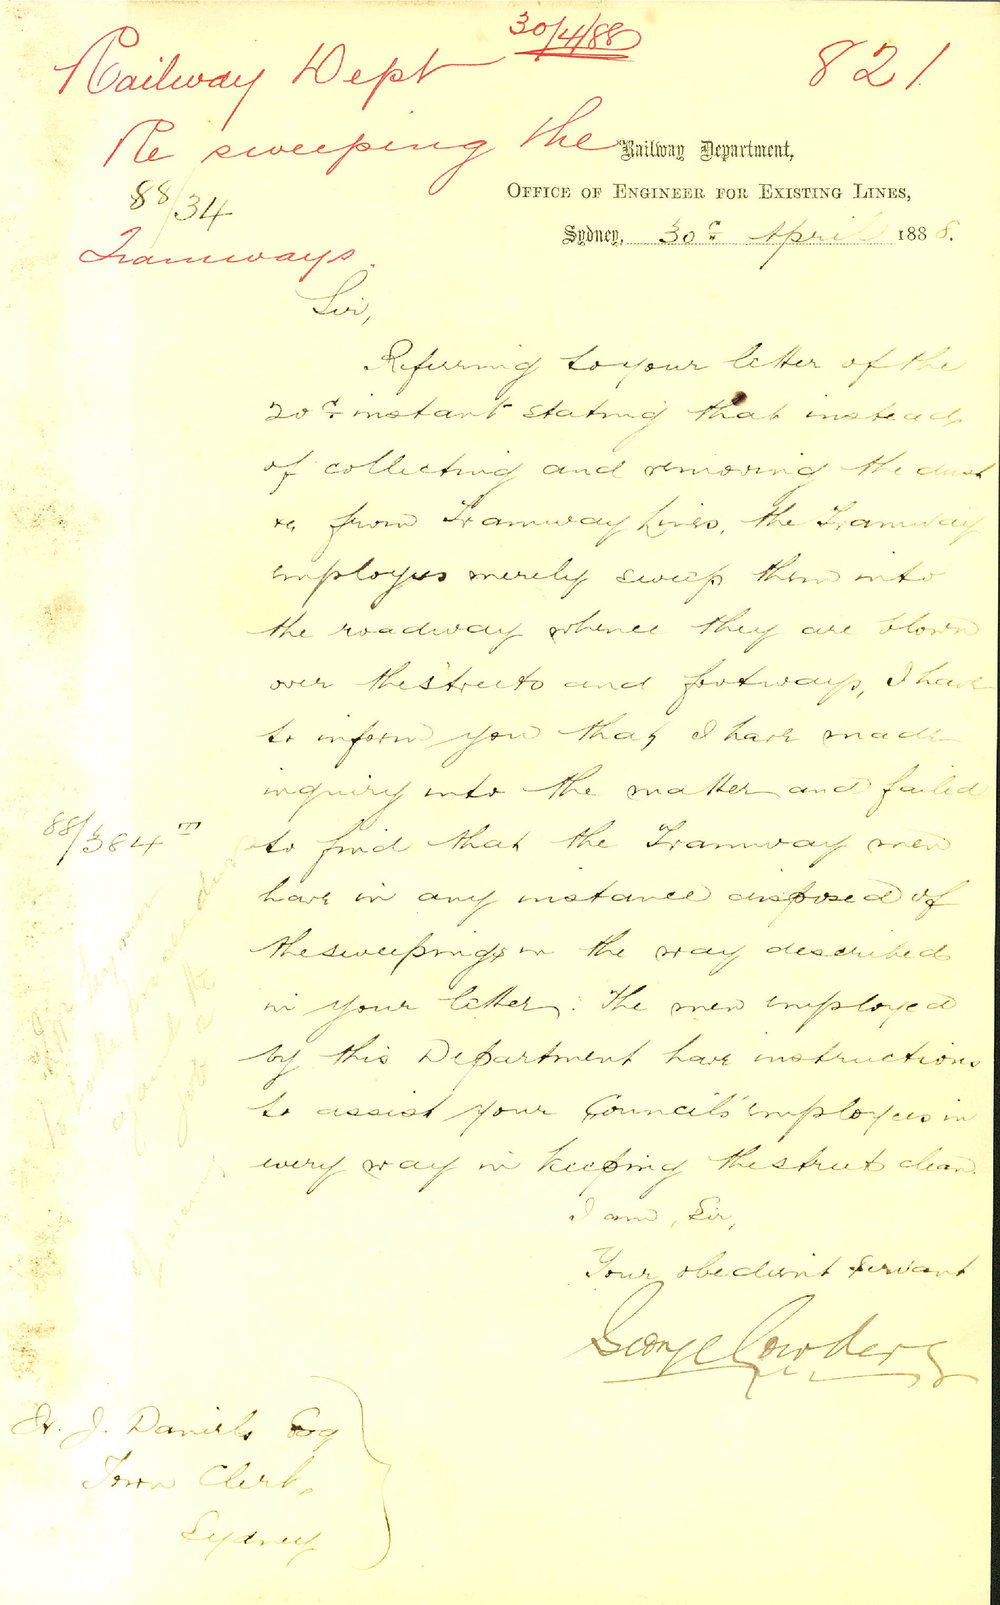 30/4/88
Railway Dept
821
Re sweeping the
Railway Department,
88/34
Office of Engineer for Existing Lines,
Sydney, 30th April 1888.
Tramways.
Sir,
Referring to your letter of the
20th instant stating that instead
of collecting and removing the dust
&c from Tramway Lines, the Tramway
employees merely sweep them into
the roadway whence they are blown
over the streets and footways, I have
to inform you that, I have made
inquiry into the matter and failed
88/384
to find that the Tramway men
have in any instance disposed of
the sweepings in the way described
in your letter: The men employed
by this Department have instructions
to assist your Council's employees in
every way in keeping the street clean.
I am, Sir,
Your obedient servant
George Cowdery
J. Daniels Esq
Town Clerk,
Sydney